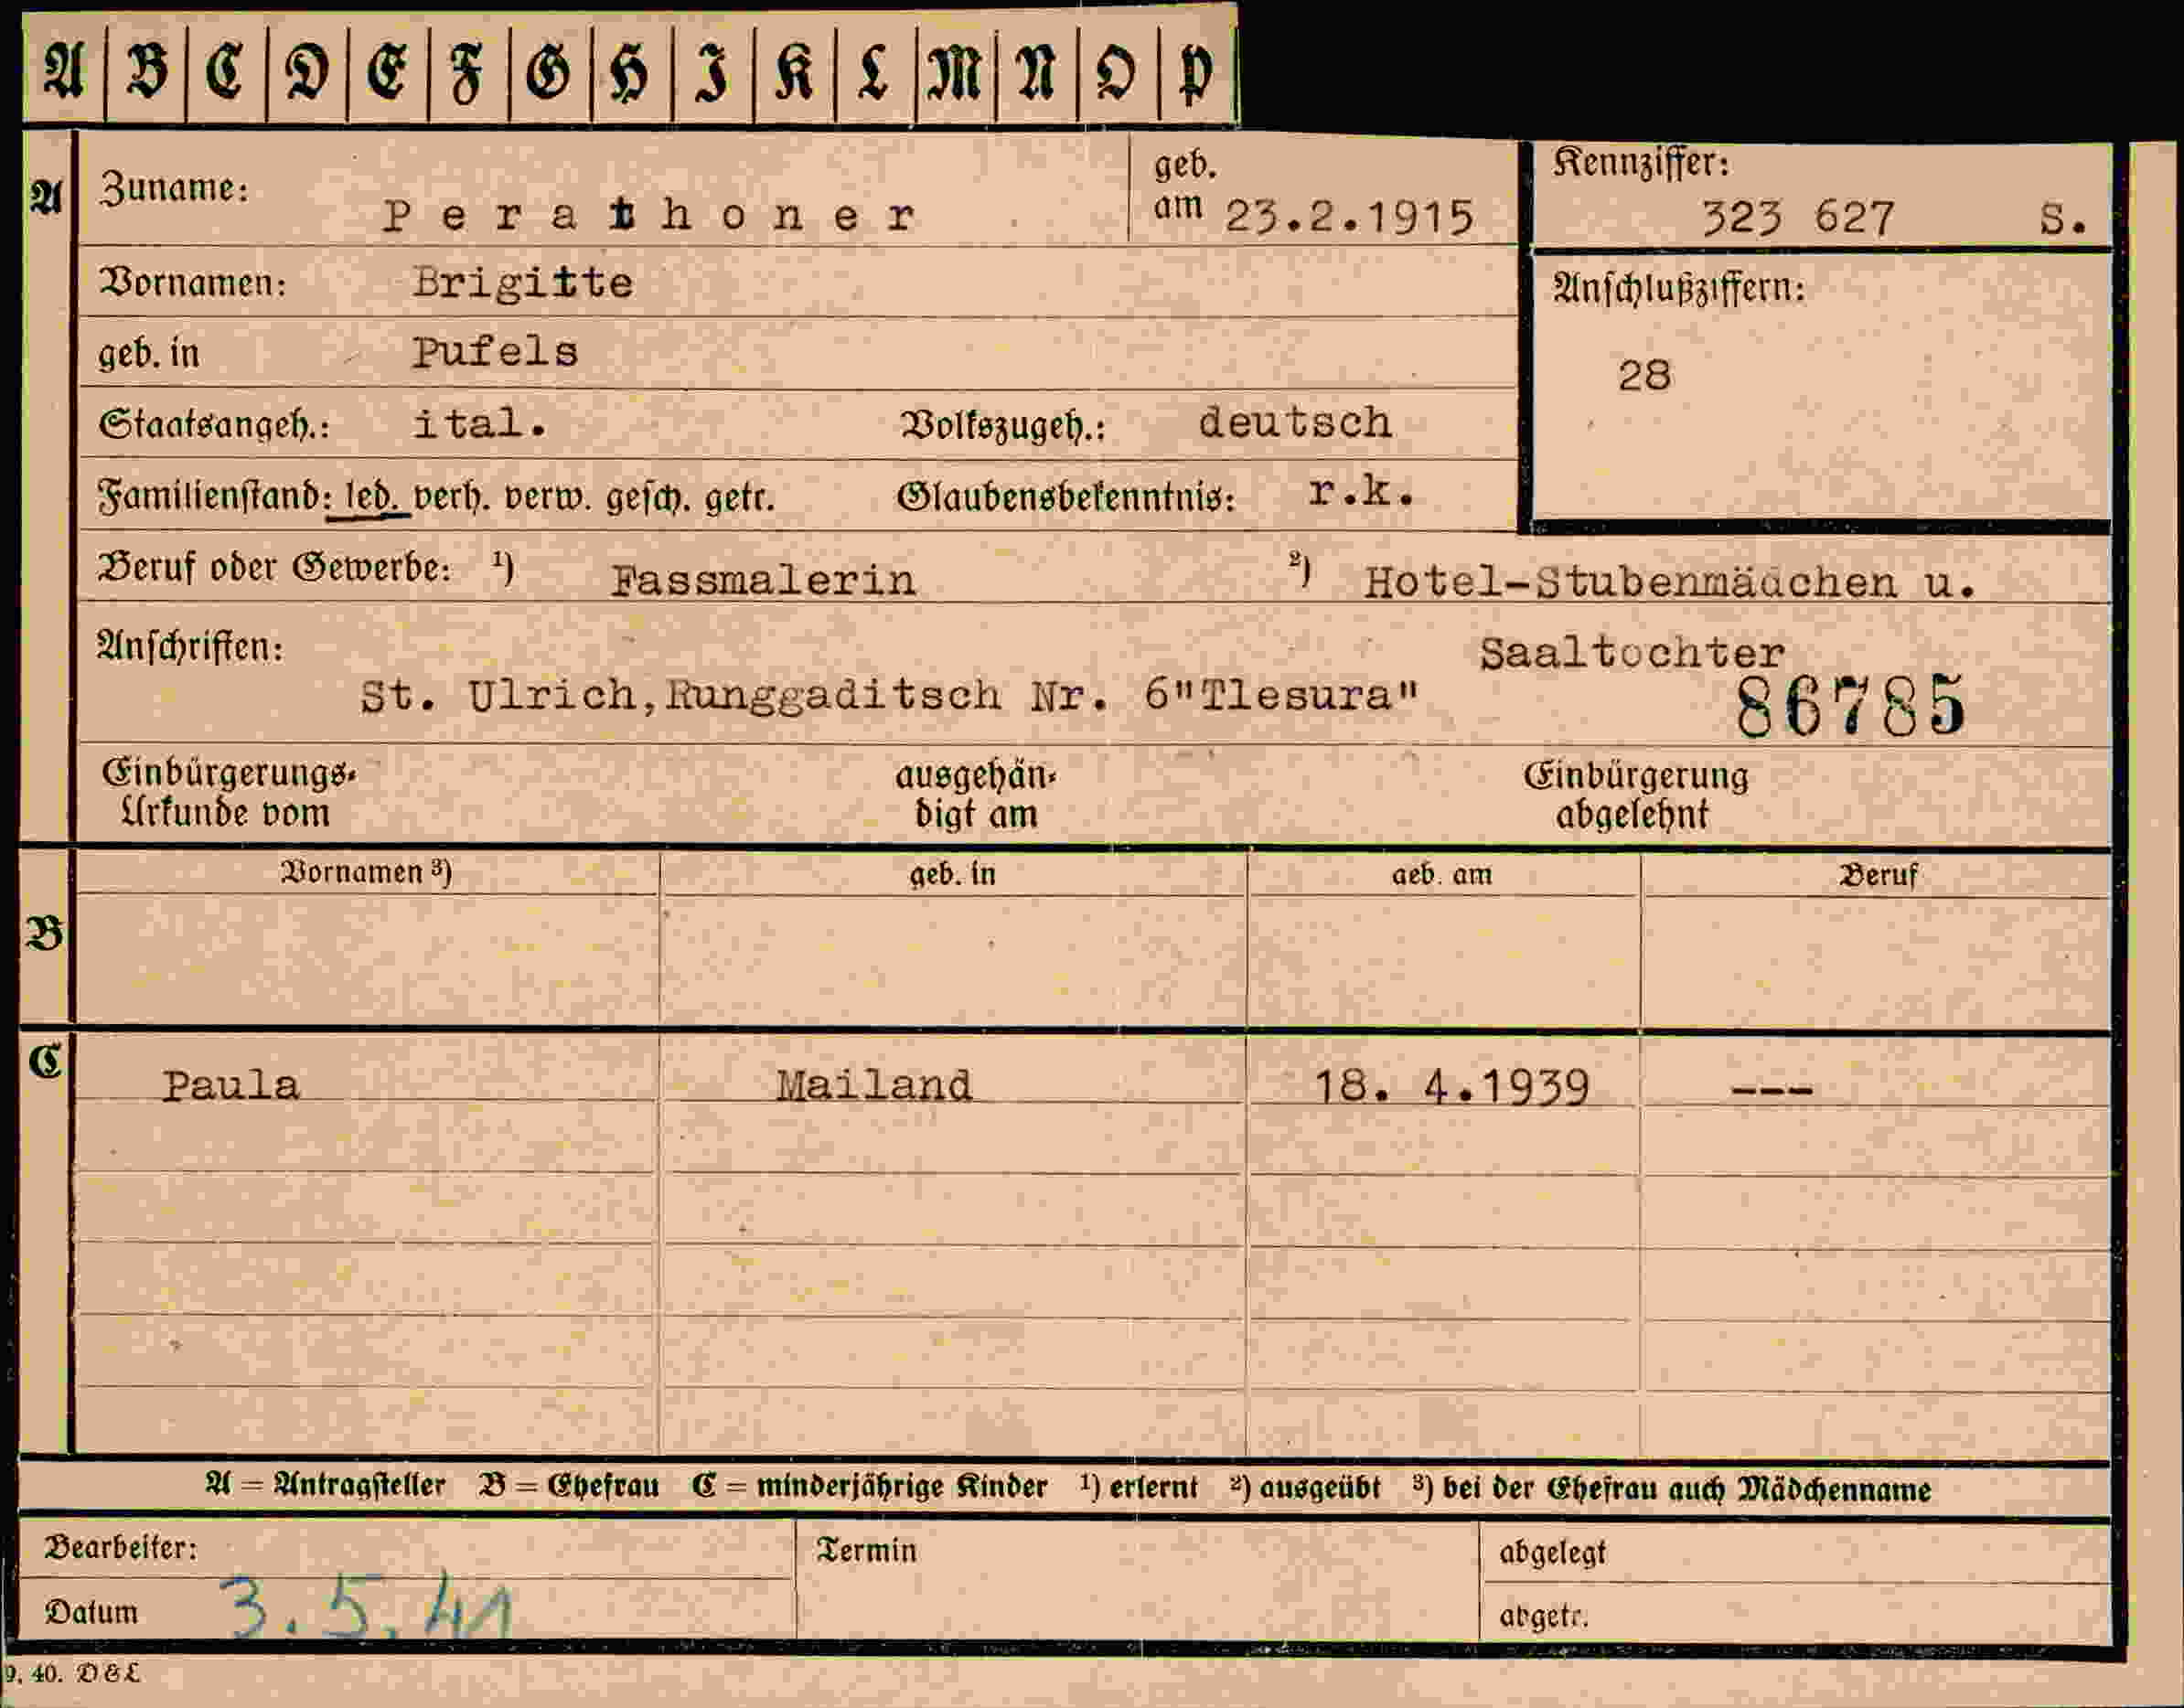 A B C D E F G H I K L M N O P
A Zuname: Perathoner geb. am 23.2.1915 Kennziffer: 323 627 S.
Vornamen: Brigitte Anschlußziffern:
geb. in Pufels 28
Staatsangeh.: ital. Volkszugeh.: deutsch
Familienstand: led. verh. verw. gesch. getr. Glaubensbekenntnis: r.k.
Beruf oder Gewerbe: ¹) Fassmalerin ²) Hotel-Stubenmädchen u.
Anschriften: Saaltochter
St. Ulrich, Runggaditsch Nr. 6"Tlesura" 86785
Einbürgerungs- ausgehän- Einbürgerung
Urkunde vom digt am abgelehnt
Vornamen ³) geb. in geb. am Beruf
B
C Paula Mailand 18. 4.1939 ---
A = Antragsteller B = Ehefrau C = minderjährige Kinder ¹) erlernt ²) ausgeübt ³) bei der Ehefrau auch Mädchenname
Bearbeiter: Termin abgelegt
Datum 3.5.41 abgetr.
9. 40. D&L